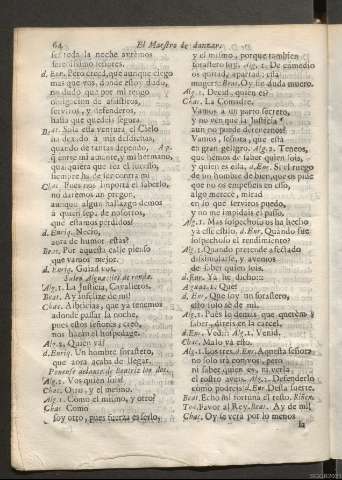 64 El Maestro de danzar.
ser toda la noche avremos
serenissimo señores.
d. Enr. Pero creed, que aunque ciego
mas que vos, donde estoy dudo,
no dudo que por mi tengo
obligacion de assistiros,
serviros, y defenderos,
hasta que quedeis segura.
Beat. Sola esta ventura el Cielo
ha dexado à mis desdichas,
quando de tantas dependo, Ap.
que entre mi amante, y mi hermano,
qualquiera que sea el sucesso,
siempre ha de ser contra mi
Chac. Pues nos importa el saberlo,
no daremos un pregon,
aunque algun hallazgo demos
à quien sepa de nosotros,
que estamos perdidos?
d. Enriq. Necio,
aora de humor estàs?
Beat. Por aquesta calle pienso
que vamos mejor.
d. Enriq. Guiad vos.
Salen Alguaciles de ronda.
Alg. 1. La Justicia, Cavalleros.
Beat. Ay infelize de mi!
Chac. Albricias, que ya tenemos
adonde passar la noche,
pues estos señores, creo,
nos haràn el hospedage.
Alg. 2. Quien và?
d. Enriq. Un hombre forastero,
que aora acaba de llegar.
Ponense adelante de Beatriz los dos.
Alg. 2. Vos quien sois?
Chac. Otro, y el mesmo.
Alg. 1. Como el mismo, y otro?
Chac. Como
soy otro, pues fuerza es serlo,
y el mismo, porque tambien
forastero soy. Alg. 1. De enmedio
os quitad, apartad: essa
muger: Beat. Oy fue duda muero.
Alg. 1. Decid, quien es?
Chac. La Comadre.
Vamos à un parto secreto,
y no ven que la Justicia
aun no puede detenernos?
Vamos, señora, que està
en gran peligro. Alg. 2. Teneos,
que hèmos de saber quien sois,
y quien es essa. d. Enr. Si el ruego
de un hombre de bien, que os pide
que no os empeñeis en esso,
algo merece, mirad
en lo que serviros puedo,
y no me impidais el passo.
Alg. 1. Mas sospechoso os ha hecho
yà esse estilo. d. Enr. Quando fue
sospechoso el rendimiento?
Alg. 1. Quando pretende afectado
dissimularle, y avemos
de saber quien sois.
d. Enr. Ya he dicho::
Alguac. 1. Què?
d. Enr. Que soy un forastero,
esto solo sè de mi.
Alg. 1. Pues lo demàs que queremos
saber, direis en la carcel.
d. Enr. Yo?: Alg. 1. Venid.
Chac. Malo và esto.
Alg. 1. Los tres. d. Enr. Aquessa señora
no solo irà con vos, pero
ni saber quien es, ni verla
el rostro aveis. Alg. 1. Defenderlo
como podreis? d. Enr. Desta suerte.
Beat. Echò mi fortuna el resto. Riñen.
Tod. Favor al Rey. Beat. Ay de mi!
Chac. Oy se verà por lo menos
la